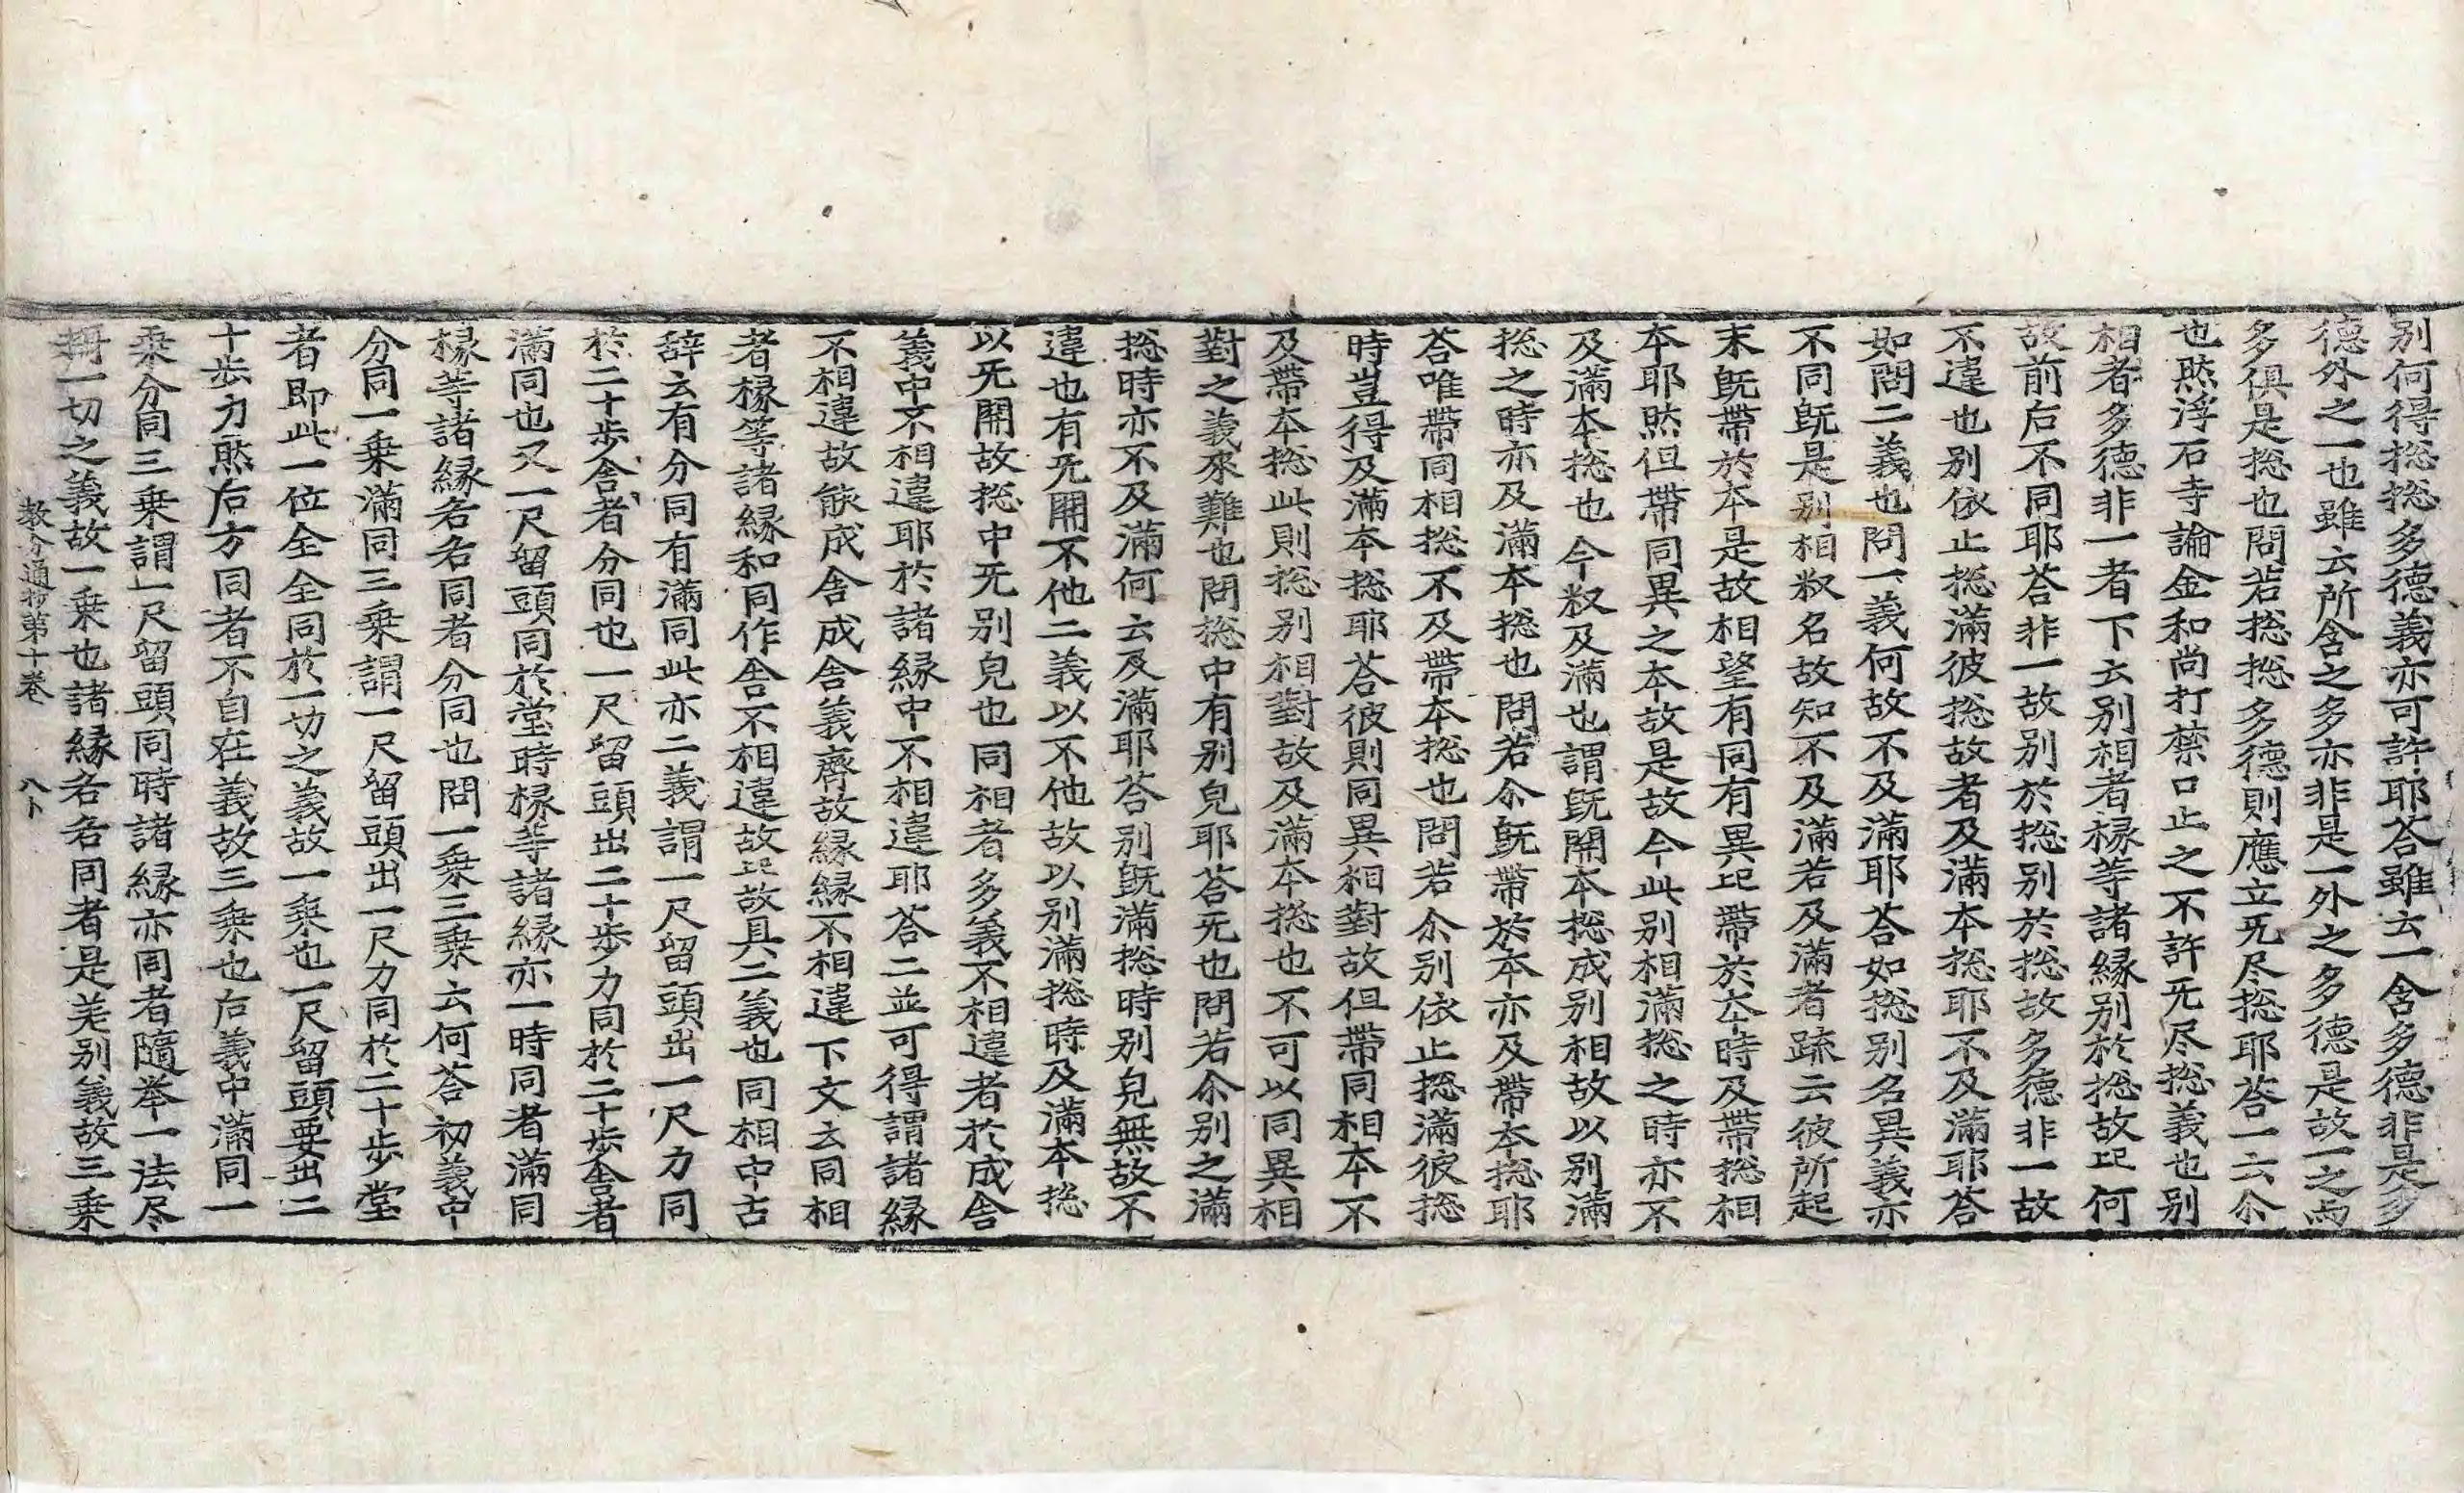 別何得捴捴多德義亦可許耶荅雖云一含多德非是多
德外之一也雖云所含之多亦非是一外之多德是故一之而
多俱是捴也問若捴捴多德則應立旡尽捴耶荅一云尒
也然浮石寺論金和尚打禁口止之不許旡尽捴義也別
相者多德非一者下云別相者椽等諸縁別於捴故記何
故前后不同耶荅非一故別於捴別於捴故多德非一故
不違也別依止捴滿彼捴故者及滿本捴耶不及滿耶荅
如問二義也問一義何故不及滿耶荅如捴別名異義亦
不同旣是別相㭊名故知不及滿若及滿者䟽云彼所起
末旣帶於本是故相望有同有異記帶於夲時及帶捴相
本耶然但帶同異之本故是故今此別相滿捴之時亦不
及滿本捴也今㭊及滿也謂旣開本捴成別相故以別滿
捴之時亦及滿本捴也問若尒旣帶於本亦及帶本捴耶
荅唯帶同相捴不及帶本捴也問若尒別依止捴滿彼捴
時豈得及滿本捴耶荅彼則同異相對故但帶同相本不
及帶本捴此則捴別相對故及滿本捴也不可以同異相
對之義來難也問捴中有別皃耶荅旡也問若尒別之滿
捴時亦不及滿何云及滿耶荅別旣滿捴時別皃無故不
違也有旡開不他二義以不他故以別滿捴時及滿本捴
以旡開故捴中旡別皃也同相者多義不相違者於成舍
義中不相違耶於諸縁中不相違耶荅二並可得謂諸縁
不相違故能成舍成舍義齊故縁縁不相違下文云同相
者椽等諸縁和同作舍不相違故記故具二義也同相中古
辞云有分同有滿同此亦二義謂一尺留頭出一尺力同
於二十步舍者分同也一尺留頭出二十步力同於二十步舍者
滿同也又一尺留頭同於堂時椽等諸縁亦一時同者滿同
椽等諸縁名名同者分同也問一乗三乗云何荅初義中
分同一乗滿同三乗謂一尺留頭出一尺力同於二十步堂
者即此一位全全同於一切之義故一乗也一尺留頭要出二
十步力然后方同者不自在義故三乗也右義中滿同一
乗分同三乗謂一尺留頭同時諸縁亦同者隨举一法尽
攝一切之義故一乗也諸縁名名同者是差別義故三乗
教分通抄第十卷 八卜